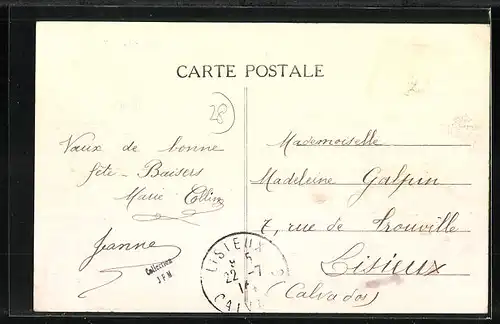 CARTE POSTALE
28
Vœux de bonne
fête - Baisers
Marie
Jeanne
Collection
J F M
Mademoiselle
Madeleine Galpin
7, rue de Trouville
Lisieux
(Calvados)
LISIEUX
5
22 -7
14
CALV